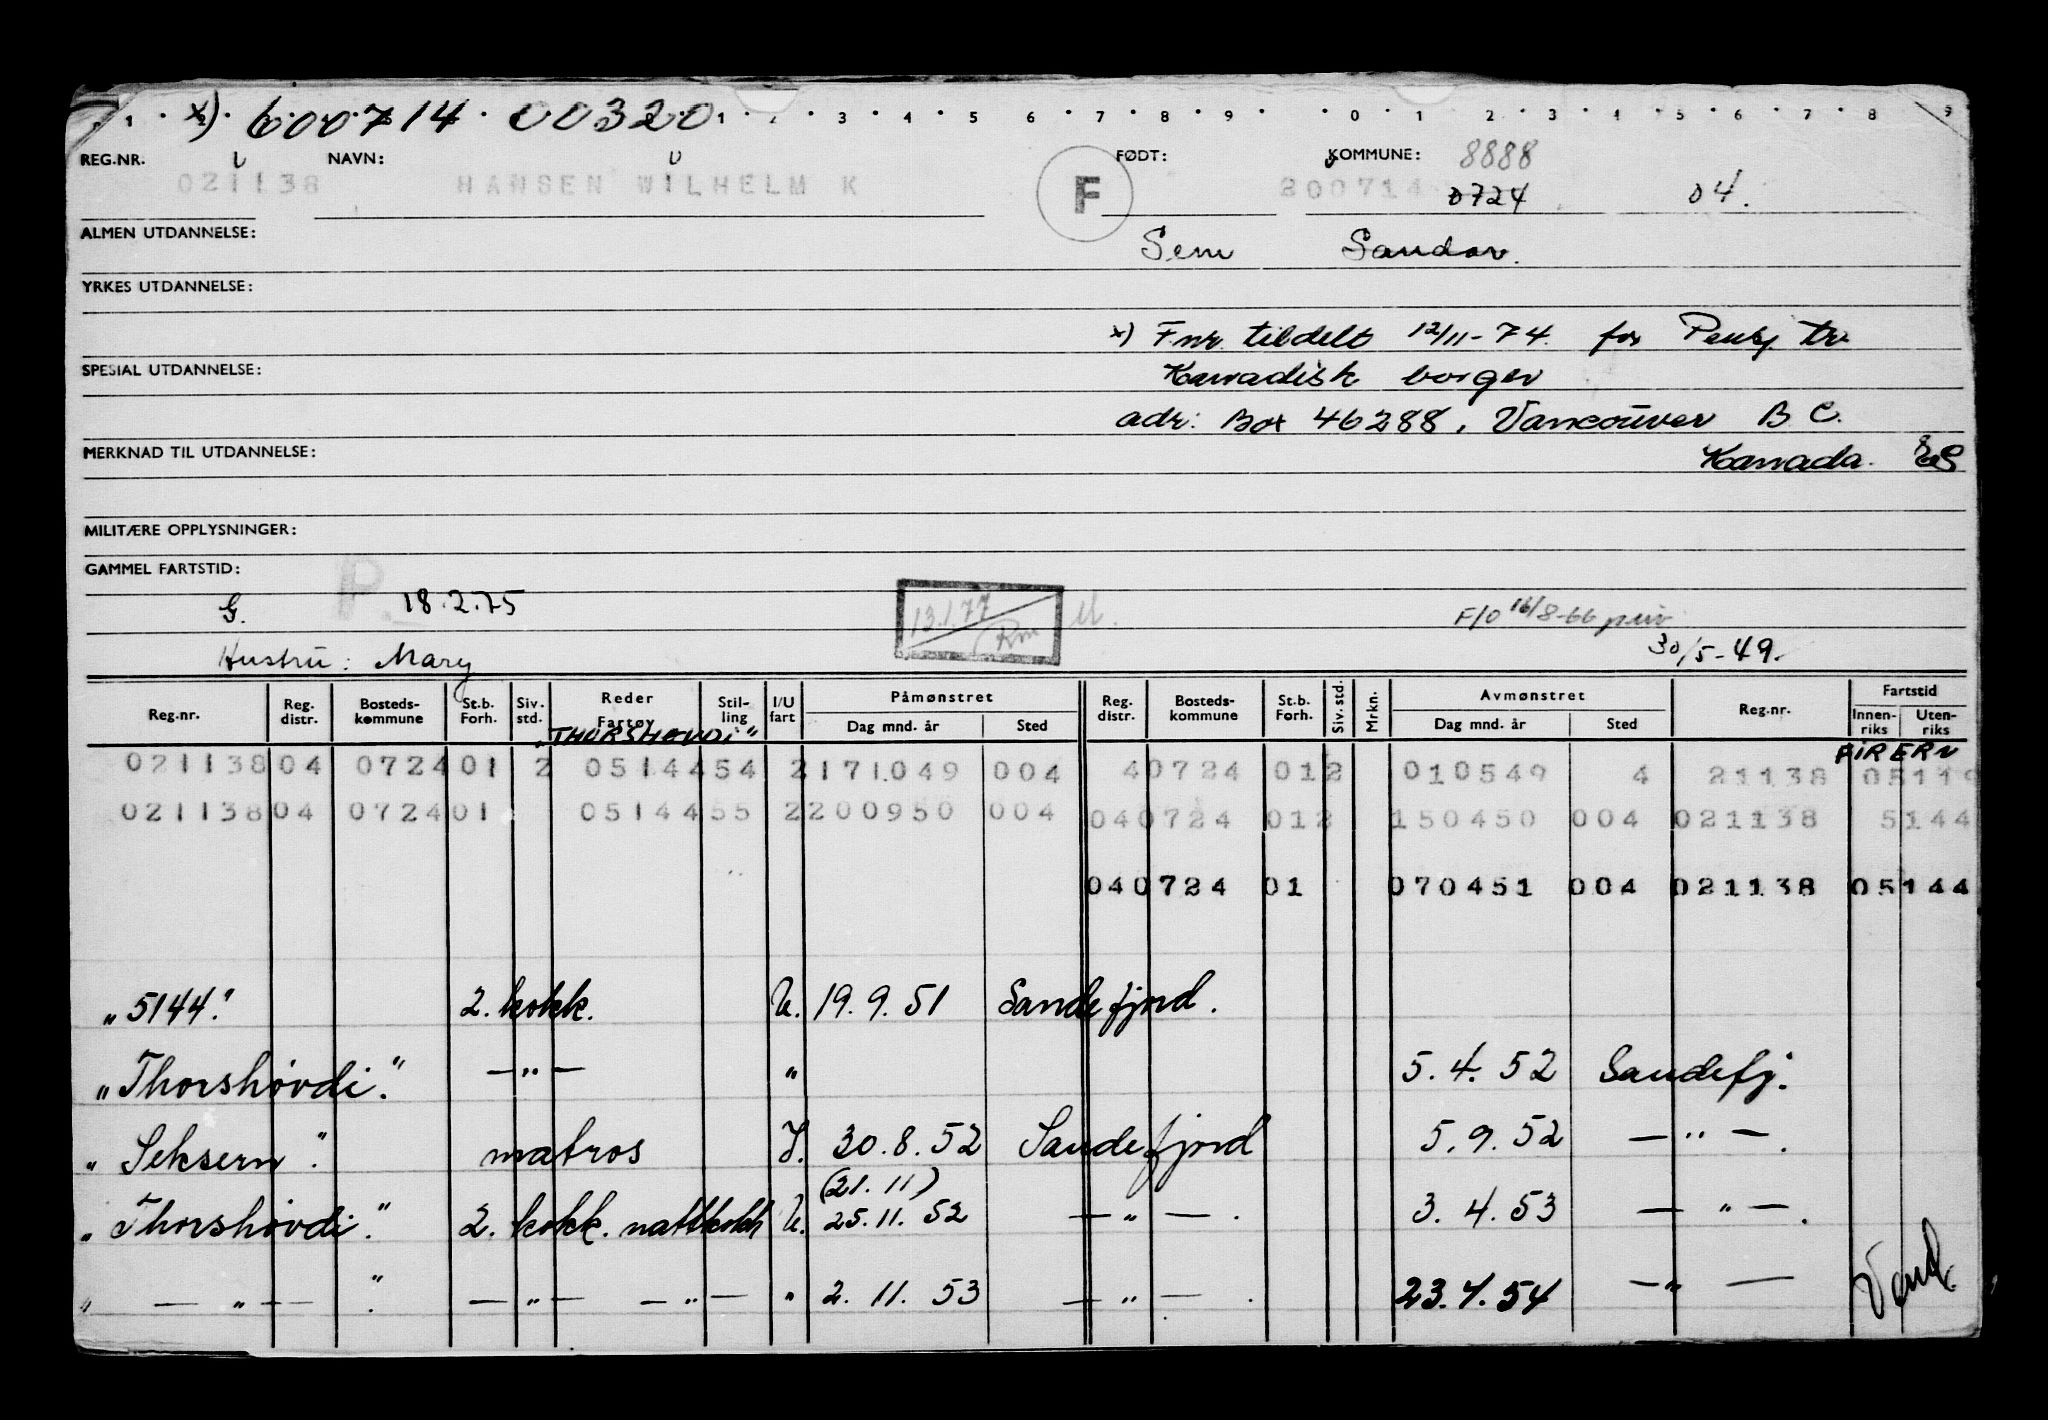 x) 600714 00320 1 2 3 4 5 6 7 8 9 0 1 2 3 4 5 6 7 8 9
REG.NR. NAVN: FØDT: KOMMUNE: 8888
021138 HANSEN WILHELM K F 200714 0724 04.
ALMEN UTDANNELSE: Sem Sandar.
YRKES UTDANNELSE:
x) Fnr. tildelt 12/11-74. for Pensj tr
SPESIAL UTDANNELSE: Kanadisk borger
adr: Box 46288, Vancouver B C.
MERKNAD TIL UTDANNELSE: Kanada.
MILITÆRE OPPLYSNINGER:
GAMMEL FARTSTID: P.
G. 18.2.75 13.1.77 Rm F/O 16/8-66 priv
Hustru: Mary 30/5-49.
Reg.nr. Reg. distr. Bosteds-kommune St.b. Forh. Siv. std. Reder Fartøy Stil-ling I/U fart Påmønstret Dag mnd. år Sted Reg. distr. Bosteds-kommune St.b. Forh. Siv. std. Mrkn. Avmønstret Dag mnd. år Sted Reg.nr. Fartstid Innen-riks Uten-riks
"THORSHOVDI" PIRERN
021138 04 0724 01 2 05144 54 2 171049 004 40724 01 2 010549 4 21138 05119
021138 04 0724 01 05144 55 2 200950 004 040724 01 2 150450 004 021138 5144
040724 01 070451 004 021138 05144
"5144". 2. kokk. U. 19.9.51 Sandefjord.
"Thorshøvdi". — " — " 5.4.52 Sandefj.
"Seksern". matros I. 30.8.52 Sandefjord 5.9.52 — " — .
(21.11)
"Thorshøvdi". 2. kokk. nattkokk U. 25.11.52 — " — . 3.4.53 — " — .
" — " — ". — " — — " — " 2.11.53 — " — . 23.4.54 — " —
Vend